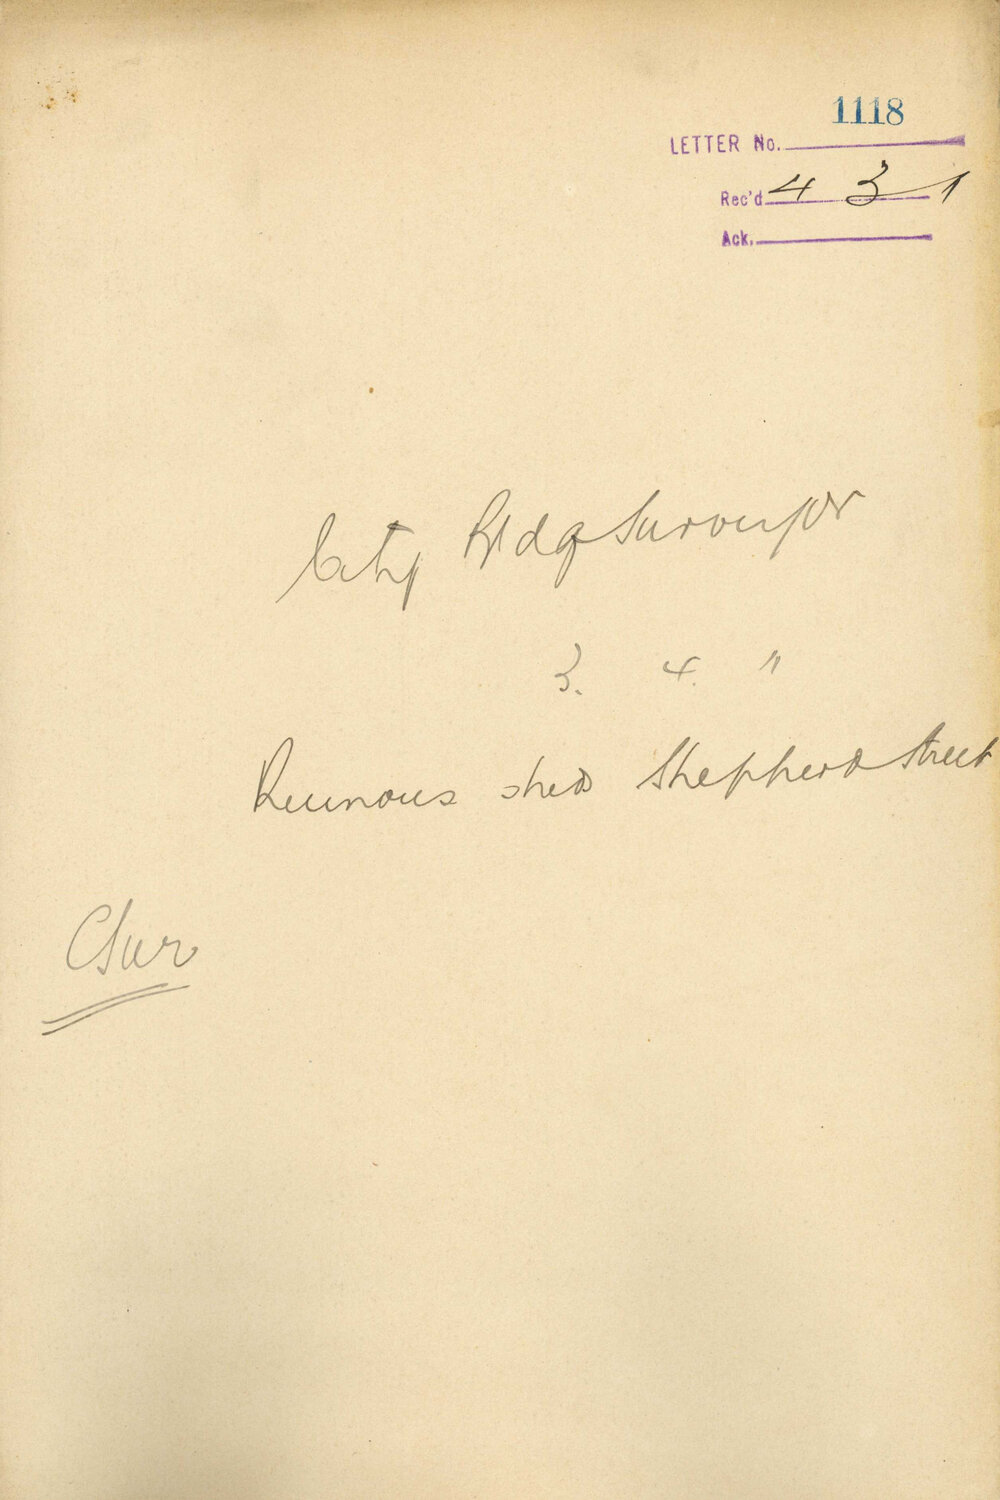 1118
LETTER No.
Rec'd 4 3 1
Ack.
City Bldg Surveyor
3. 4. "
Ruinous shed Shepherd Street
CSur